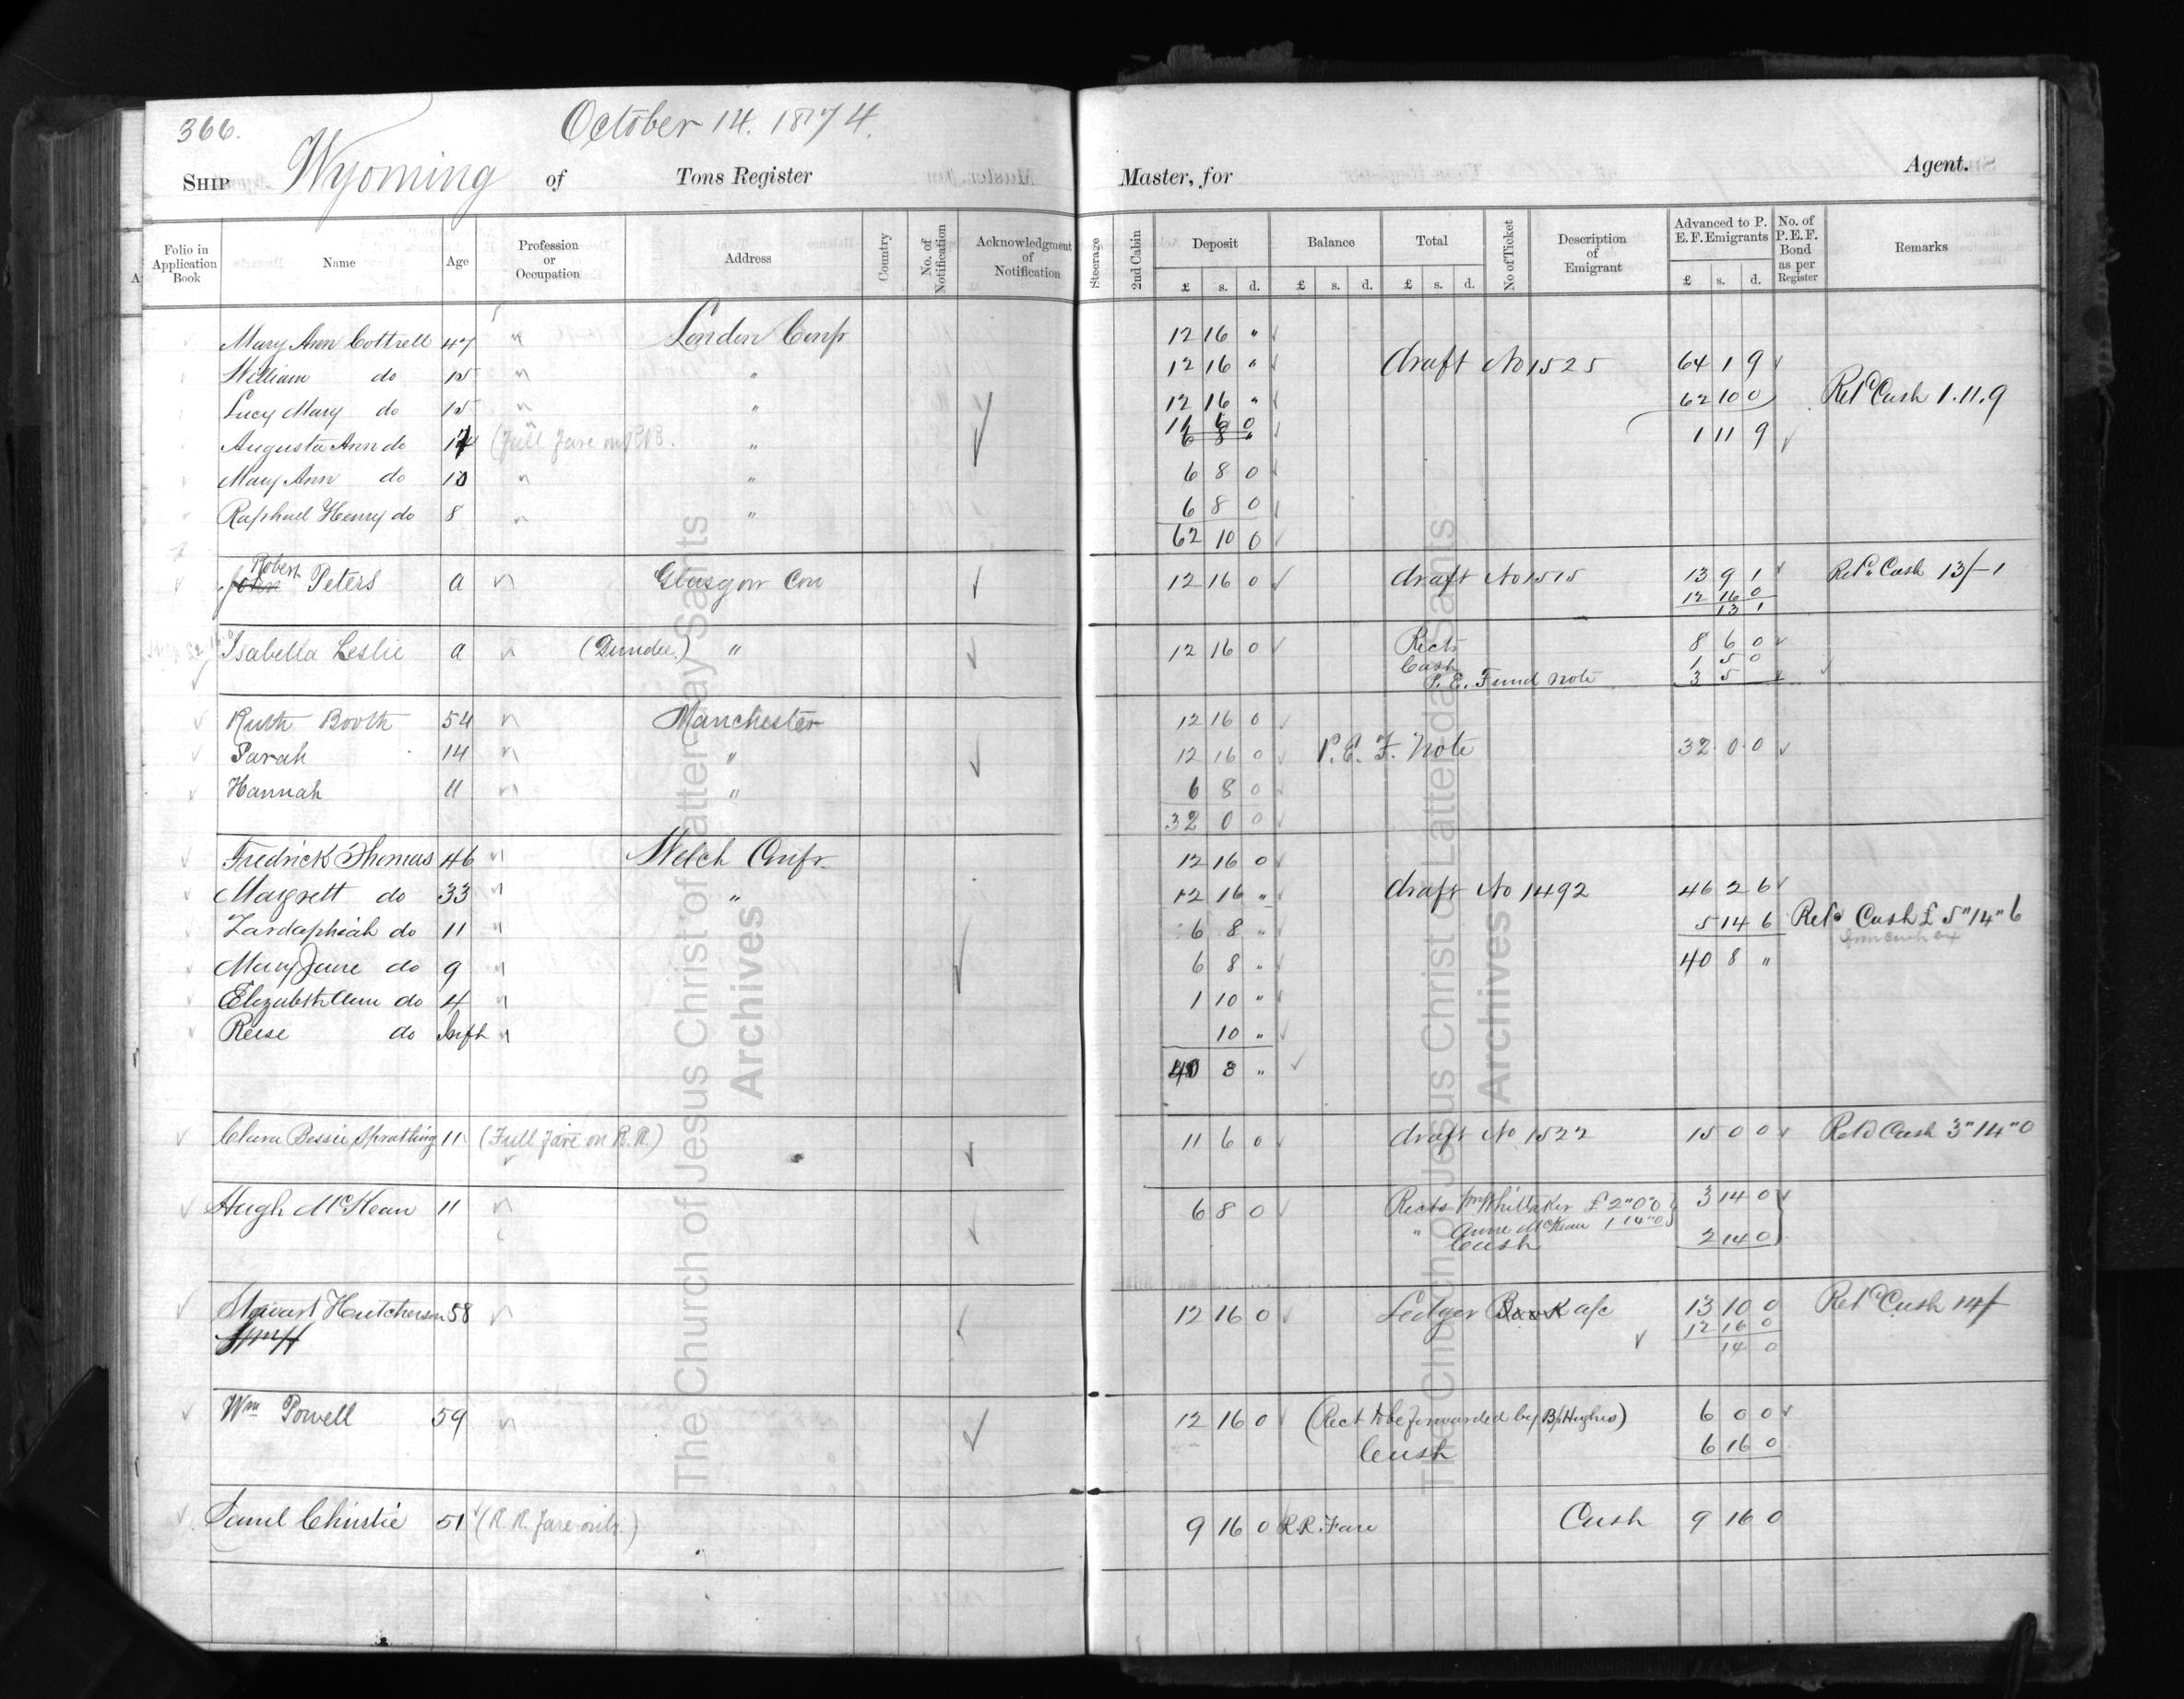 366. October 14. 1874.
SHIP Wyoming of Tons Register Master, for Agent.
Folio in Application Book Name Age Profession or Occupation Address Country No. of Notification Acknowledgment of Notification Steerage 2nd Cabin Deposit Balance Total No of Ticket Description of Emigrant Advanced to P. E. F. Emigrants No. of P.E.F. Bond as per Register Remarks
£ s. d. £ s. d. £ s. d. £ s. d.
Mary Ann Cottrell 47 " London Conf 12 16 "
William do 15 " " 12 16 " draft No 1525 64 1 9
Lucy Mary do 15 " " 12 16 " 62 10 0 Retd Cash 1.11.9
11 6 0
Augusta Ann do 14 (Full Fare on R.R. " 6 8 " 1 11 9
Mary Ann do 10 " " 6 8 0
Raphael Henry do 8 " " 6 8 0
62 10 0
Robert
John Peters a " Glasgow Con 12 16 0 draft No 1515 13 9 1 Retd Cash 13/-1
12 16 0
13 1
Isabella Leslie a " (Dundee) " 12 16 0 Rects 8 6 0
Cash 1 5 0
P. E. Fund Note 3 5
Ruth Booth 54 " Manchester 12 16 0
Sarah 14 " " 12 16 0 P. E. F. Note 32 0 0
Hannah 11 " " 6 8 0
32 0 0
Fredrick Thomas 46 " Welch Confr. 12 16 0
Margrett do 33 " " 12 16 " draft No 1492 46 2 6
Zardaphiah do 11 " 6 8 " 5 14 6 Retd Cash £ 5"14"6
Mary Jane do 9 " 6 8 " 40 8 "
Elizabeth Ann do 4 " 1 10 "
Reese do Infh " 10 "
40 8 "
Clara Bessie Spratling 11 (Full fare on R.R.) 11 6 0 draft No 1522 15 0 0 Retd Cash 3"14"0
Hugh McKean 11 " 6 8 0 Rects Whittaker £2"0"0 3 14 0
" Anne McKean 1 14"0
Cash 2 14 0
Stewart Hutcherson 58 " 12 16 0 Ledger Book a/c 13 10 0 Retd Cash 14/-
12 16 0
14 0
Wm Powell 59 " 12 16 0 (Rect to be forwarded by Bp Hughes) 6 0 0
Cash 6 16 0
Saml Christie 51 (R. R. fare only.) 9 16 0 R.R. Fare Cash 9 16 0
The Church of Jesus Christ of Latter-day Saints
Archives
The Church of Jesus Christ of Latter-day Saints
Archives